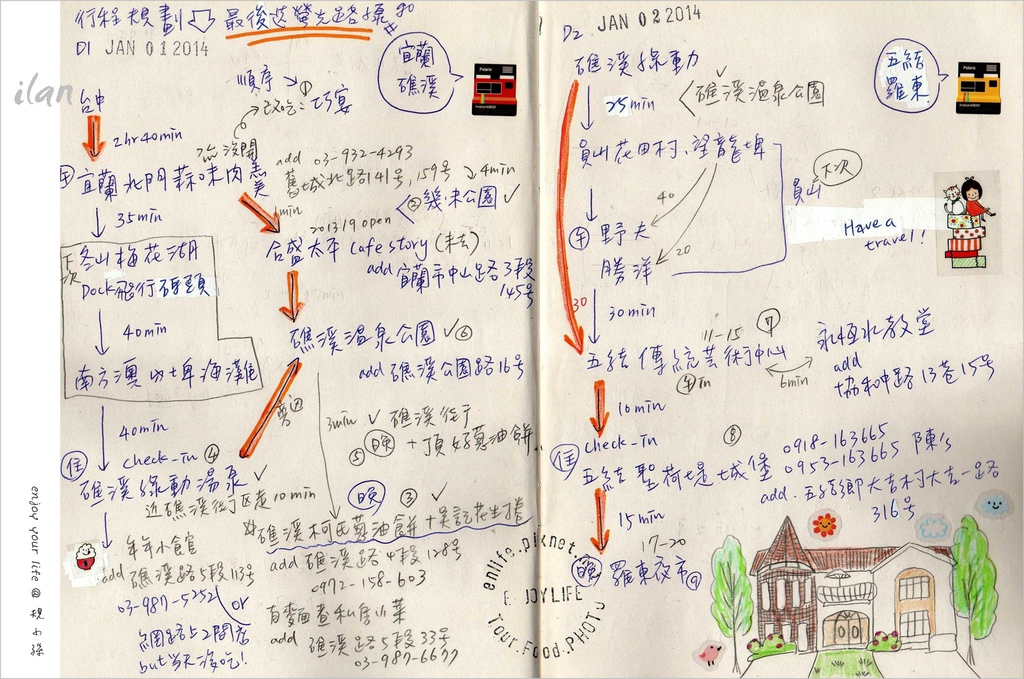 行程規劃 最後以螢光路線為
D1 JAN 01 2014
宜蘭
礁溪
ilan
台中
順序 ①
改吃:巧宴
2hr40min
沒開
add 03-932-4293
舊城北路141號,159號
4min
午 宜蘭北門蒜味肉羹
1min
② 幾米公園 ✓
2013 19 open
35min
合盛太平 Cafe story (未去)
add 宜蘭市中山路3段
145號
下次
冬山梅花湖
Dock飛行碼頭
40min
南方澳 內埤海灘
礁溪溫泉公園 ✓ ⑥
add 礁溪公園路16號
40min
3min ✓ 礁溪街于
⑤ 晚 + 頂好蔥油餅
check-in ④
住 礁溪綠動湯泉 ✓
近礁溪街丁區走10min
晚 ③ ✓
礁溪柯氏蔥油餅 + 吳記花生捲
add 礁溪路4段128號
0972-158-603
年年小食官
add 礁溪路5段113號
03-987-5252
or
百麵香私房小菜
add 礁溪路5段33號
03-987-6677
網路上2間店
but 當天沒吃!
enjoy your life @
D2 JAN 02 2014
五結
羅東
礁溪綠動 ✓
25min
礁溪溫泉公園
員山花田村、望龍埤
下次
員山
Have a
travel!
40
午 野夫
20
勝洋
30
30min
11-15 ⑦
五結傳統芸術中心
午in
6min
永恆水教堂
add
協和中路13巷15號
10min
check-in ⑧
住 五結聖荷緹城堡
0918-163665
0953-163665 陳's
add. 五結鄉大吉村大吉一路
316號
15min
17-20
晚 羅東夜市 ⑨
enlife.pixnet.
ENJOYLIFE
Tour.Food.PHOTO